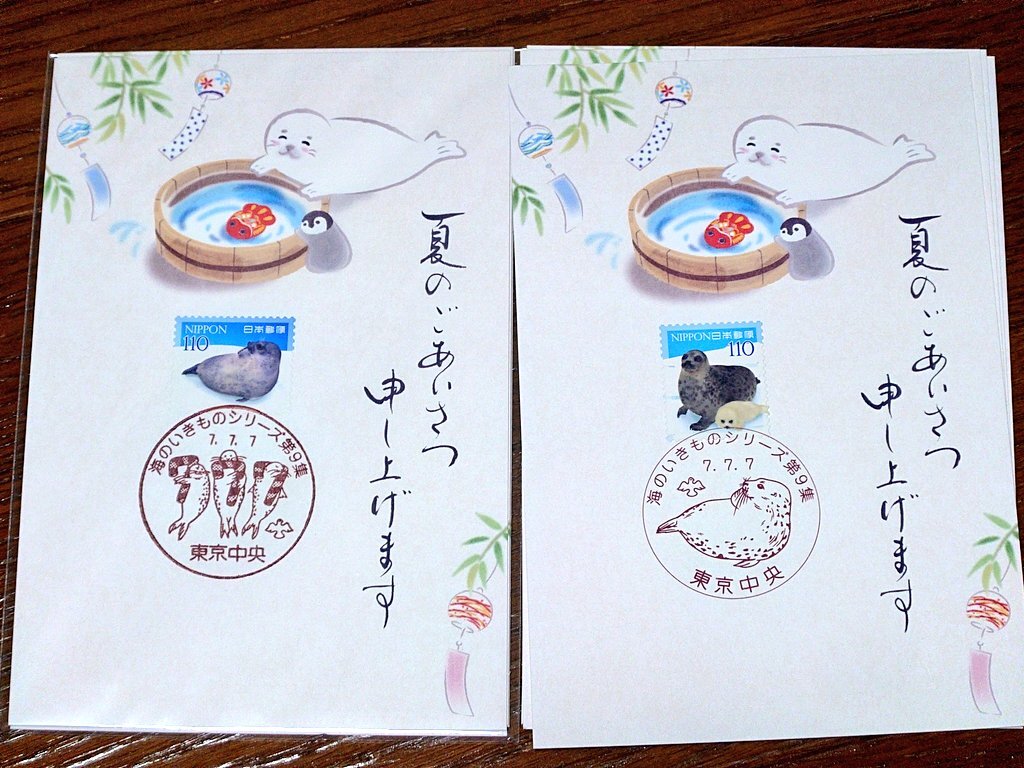 夏のごあいさつ
申し上げます
NIPPON 日本郵便
110
海のいきものシリーズ第9集
7.7.7
東京中央
夏のごあいさつ
申し上げます
NIPPON 日本郵便
110
海のいきものシリーズ第9集
7.7.7
東京中央